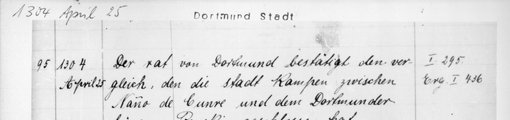 1304 April 25
Dortmund Stadt
95 1304 Der rat von Dortmund bestätigt den ver- I 295.
April 25 gleich, den die stadt Kampen zwischen Erg I 436
Naño de Cunre und dem Dortmunder